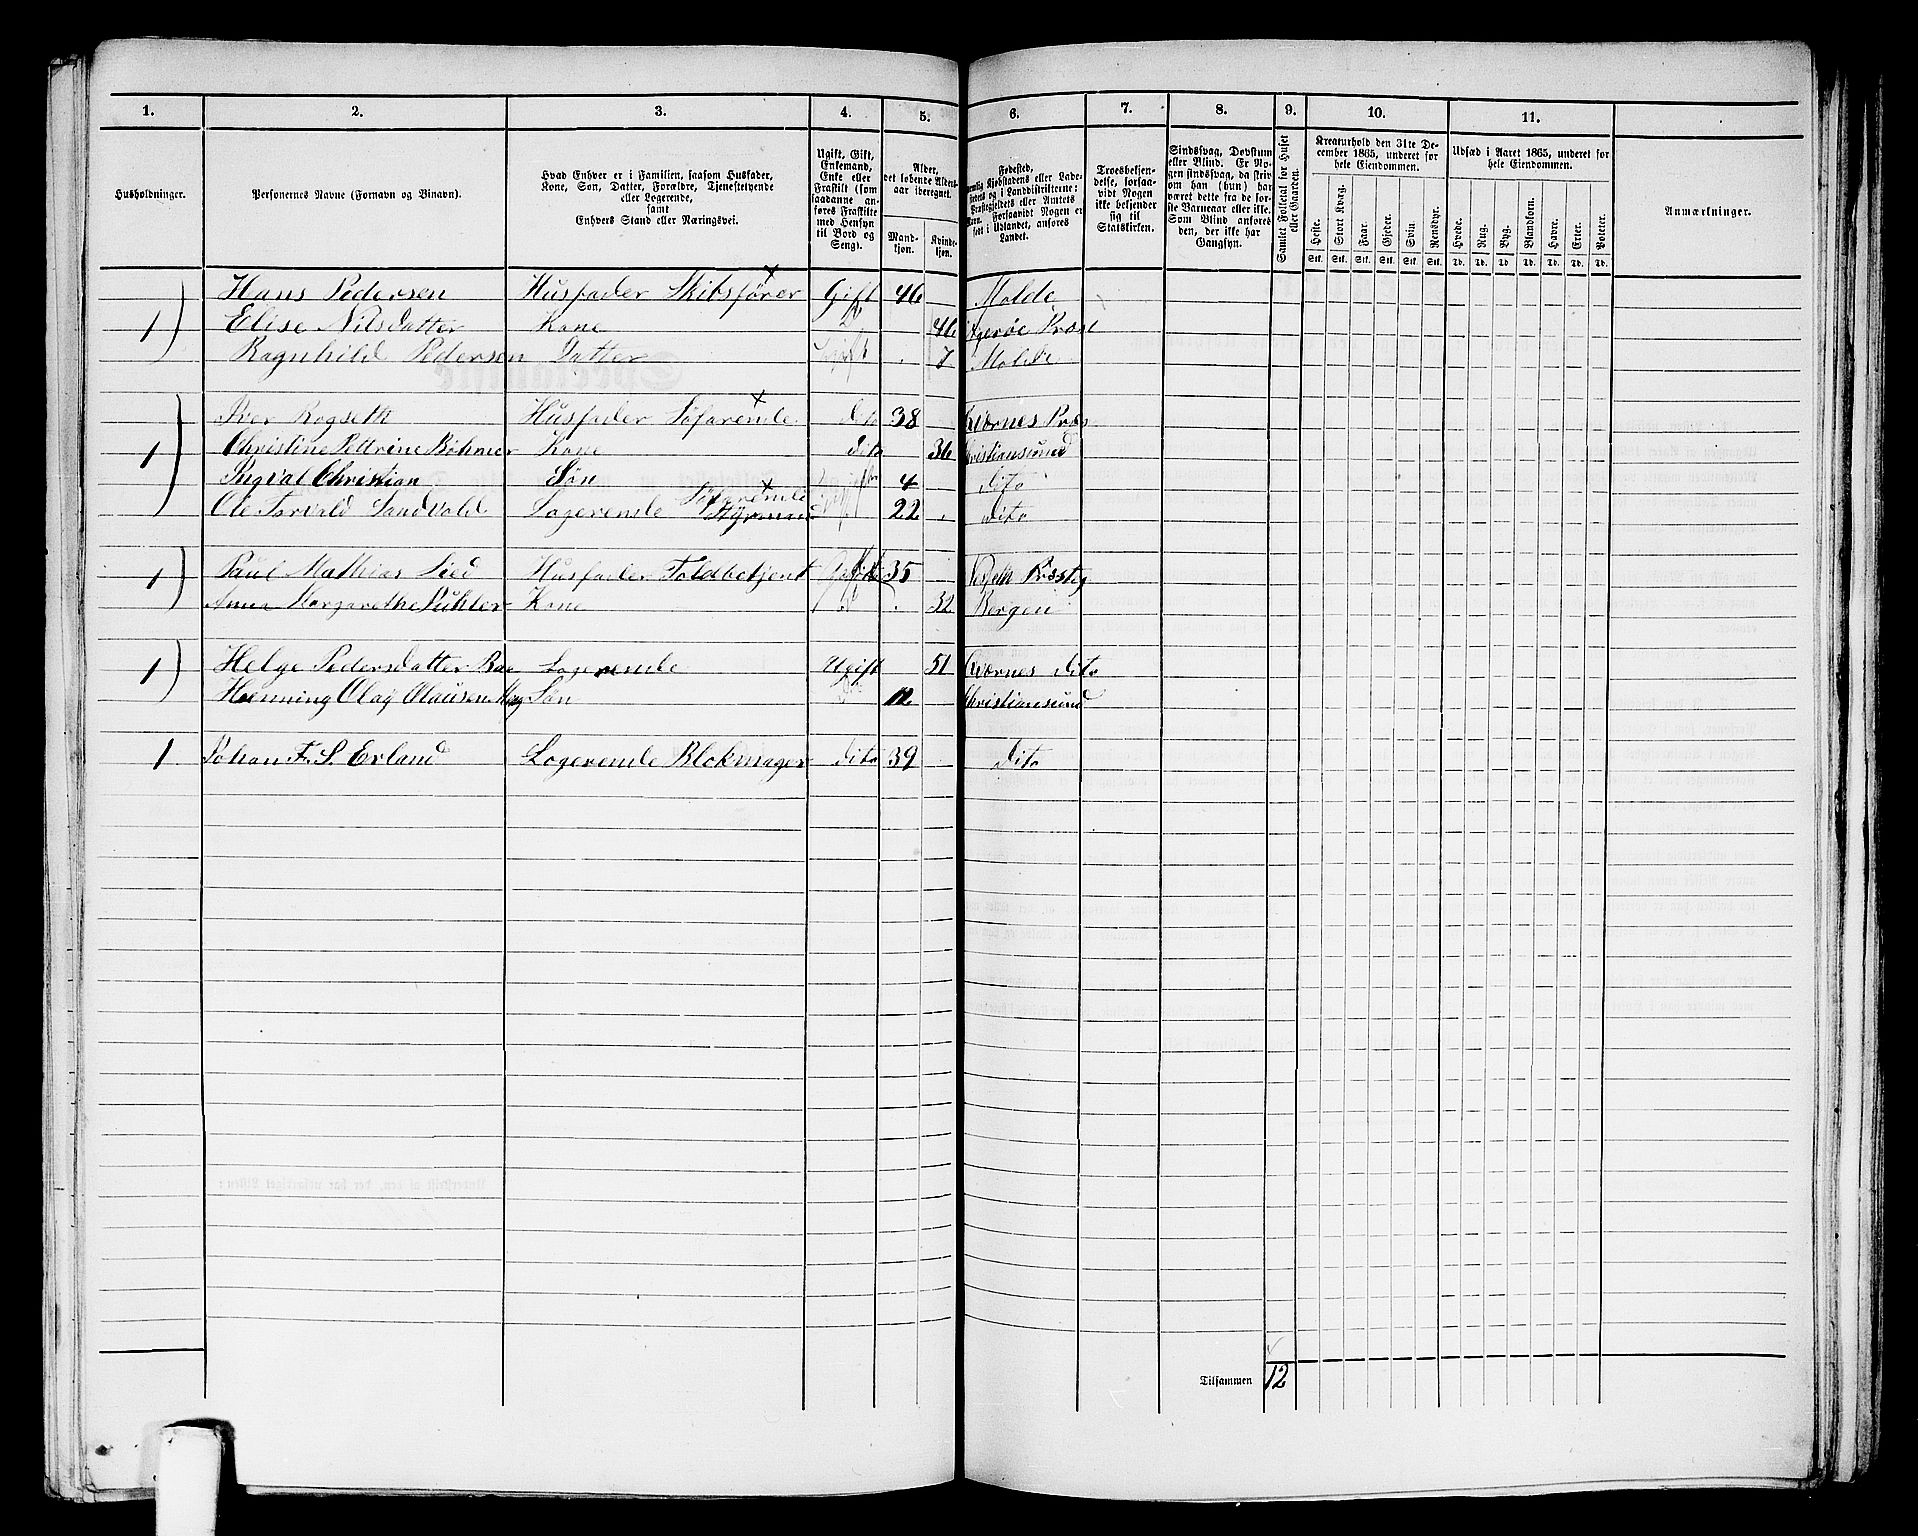 1. 2. 3. 4. 5. 6. 7. 8. 9. 10. 11.
Husholdninger.
Personernes Navne (Fornavn og Binavn).
Hvad Enhver er i Familien, saasom Husfader,
Kone, Søn, Datter, Forældre, Tjenestetyende
eller Logerende,
samt
Enhvers Stand eller Næringsvei.
Ugift, Gift,
Enkemand,
Enke eller
Fraskilt (som
saadanne an-
føres Fraskilte
med Hensyn
til Bord og
Seng).
Alder,
det løbende Alders-
aar iberegnet.
Mand-
kjøn.
Kvinde-
kjøn.
Fødested,
Landet.
Troesbekjen-
delse, forsaa-
vidt Nogen
ikke bekjender
sig til
Statskirken.
Sindssvag, Døvstum
eller Blind. Er No-
gen sindssvag, da skriv
om han (hun) har
været dette fra de før-
ste Barneaar eller ikke.
Som Blind anføres
den, der ikke har
Gangsyn.
Samlet Folketal for Huset
eller Gaarden.
Kreaturhold den 31te De-
cember 1865, underet for
hele Eiendommen.
Heste. Stort Kvæg. Faar. Gjeder. Svin Rensdyr.
Stk. Stk. Stk. Stk. Stk. Stk.
Udsæd i Aaret 1865, underet for
hele Eiendommen.
Hvede. Rug. Byg. Blandkorn. Havre. Erter. Poteter.
Td. Td. Td Td. Td. Td. Td.
Anmærkninger.
Hans Pedersen Husfader Skibsfører Gift 46 Molde
1 Elise Nilsdatter Kone 46
Ragnhild Pedersen Datter Ugift 7 Molde
Iver Rogseth Husfader Søfarende dito 38 Kværnes Præs
1 Christine Pettrine Bøhmer Kone dito 36 Christiansund
Ingval Christian Søn 4 dito
Ole Torvald Sandvold Logerende Søfarende Styrmand 22 dito
1 Paul Mathias Lied Husfader Toldbetjent Gift 35
Anna Margarethe Kone 32 Bergen
1 Helge Pedersdatter Logerende Ugift 51 Kværnes dito
Henning Olag Olausen Søn 12 Christiansund
1 Johan F. S. Erland Logerende Blokmager dito 39 dito
Tilsammen 12